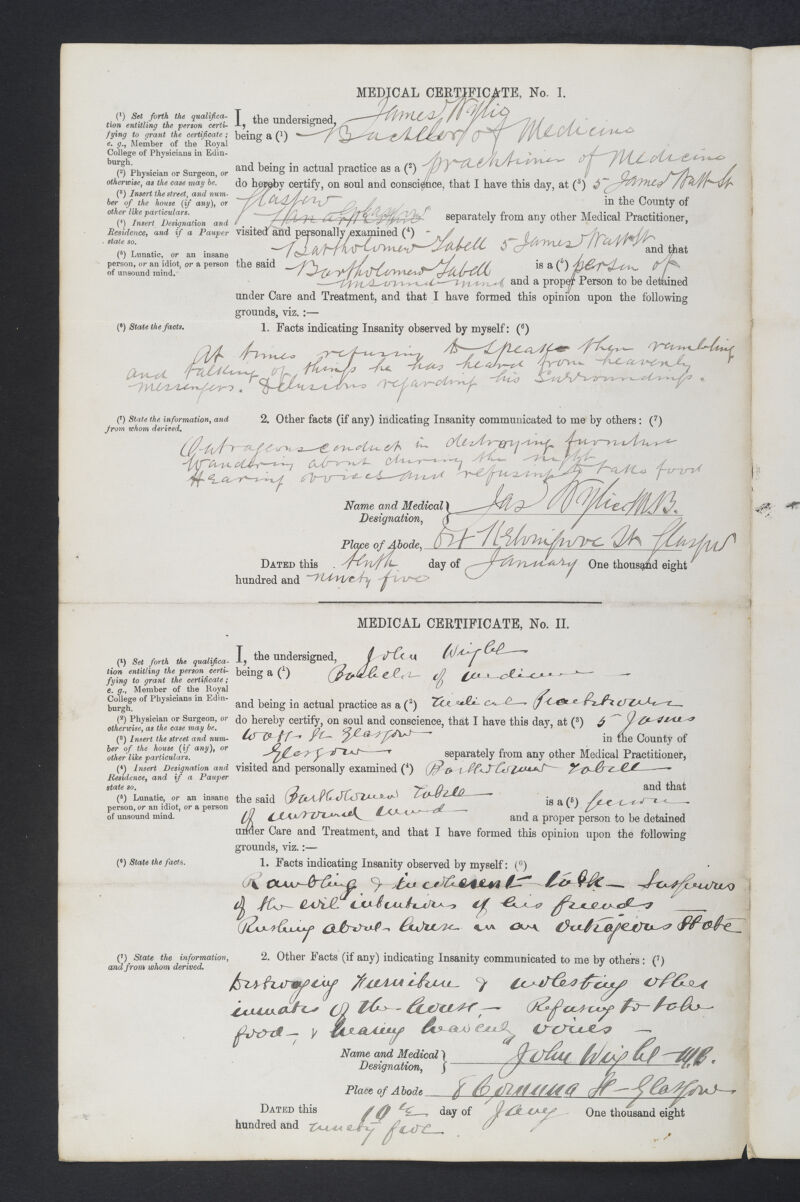 MEDICAL CERTIFICATE, No. I.
(¹) Set forth the qualifica-
tion entitling the person certi-
fying to grant the certificate;
e. g., Member of the Royal
College of Physicians in Edin-
burgh.
(²) Physician or Surgeon, or
otherwise, as the case may be.
(³) Insert the street, and num-
ber of the house (if any), or
other like particulars.
(⁴) Insert Designation and
Residence, and if a Pauper
state so.
(⁵) Lunatic, or an insane
person, or an idiot, or a person
of unsound mind.
I, the undersigned, James Wylie
being a (¹) Bachelor of Medicine
and being in actual practice as a (²) practitioner of Medicine
do hereby certify, on soul and conscience, that I have this day, at (³) 5 James Watt St
Glasgow in the County of
Lanark separately from any other Medical Practitioner,
visited and personally examined (⁴)
Bartholomew Tabell 5 James Watt St and that
the said Bartholomew Tabell is a (⁵) person of
unsound mind and a proper Person to be detained
under Care and Treatment, and that I have formed this opinion upon the following
grounds, viz. :—
(⁶) State the facts.
1. Facts indicating Insanity observed by myself: (⁶)
At times refusing to speak then rambling
and talking of things he has heard from heavenly
messengers. Delusions regarding his surroundings.
(⁷) State the information, and
from whom derived.
2. Other facts (if any) indicating Insanity communicated to me by others: (⁷)
Outrageous conduct in destroying furniture
Wandering about during the night
Hearing voices and refusing to take food
Name and Medical
Designation, Jas Wylie M.B.
Place of Abode, Kelvingrove St Glasgow
DATED this tenth day of January One thousand eight
hundred and ninety five
MEDICAL CERTIFICATE, No. II.
(¹) Set forth the qualifica-
tion entitling the person certi-
fying to grant the certificate;
e. g., Member of the Royal
College of Physicians in Edin-
burgh.
(²) Physician or Surgeon, or
otherwise, as the case may be.
(³) Insert the street and num-
ber of the house (if any), or
other like particulars.
(⁴) Insert Designation and
Residence, and if a Pauper
state so.
(⁵) Lunatic, or an insane
person, or an idiot, or a person
of unsound mind.
I, the undersigned, John Wright
being a (¹) Bachelor of medicine
and being in actual practice as a (²) medical Practitioner
do hereby certify, on soul and conscience, that I have this day, at (³) 5 James
Watt St Glasgow in the County of
Glasgow separately from any other Medical Practitioner,
visited and personally examined (⁴) Bartholomew Tabell
and that
the said Bartholomew Tabell is a (⁵) person
of unsound mind and a proper person to be detained
under Care and Treatment, and that I have formed this opinion upon the following
grounds, viz. :—
(⁶) State the facts.
1. Facts indicating Insanity observed by myself: (⁶)
Rambling & incoherent talk — Suspicious
of the evil intentions of his friends —
Rushing about house in an outrageous state
(⁷) State the information,
and from whom derived.
2. Other Facts (if any) indicating Insanity communicated to me by others: (⁷)
Destroying Furniture & molesting other
inmates of the house — Refusing to take
food — & hearing heavenly voices —
Name and Medical
Designation, John Wright M.B.
Place of Abode 8 Corunna St — Glasgow
DATED this 10th day of Jany One thousand eight
hundred and ninety five